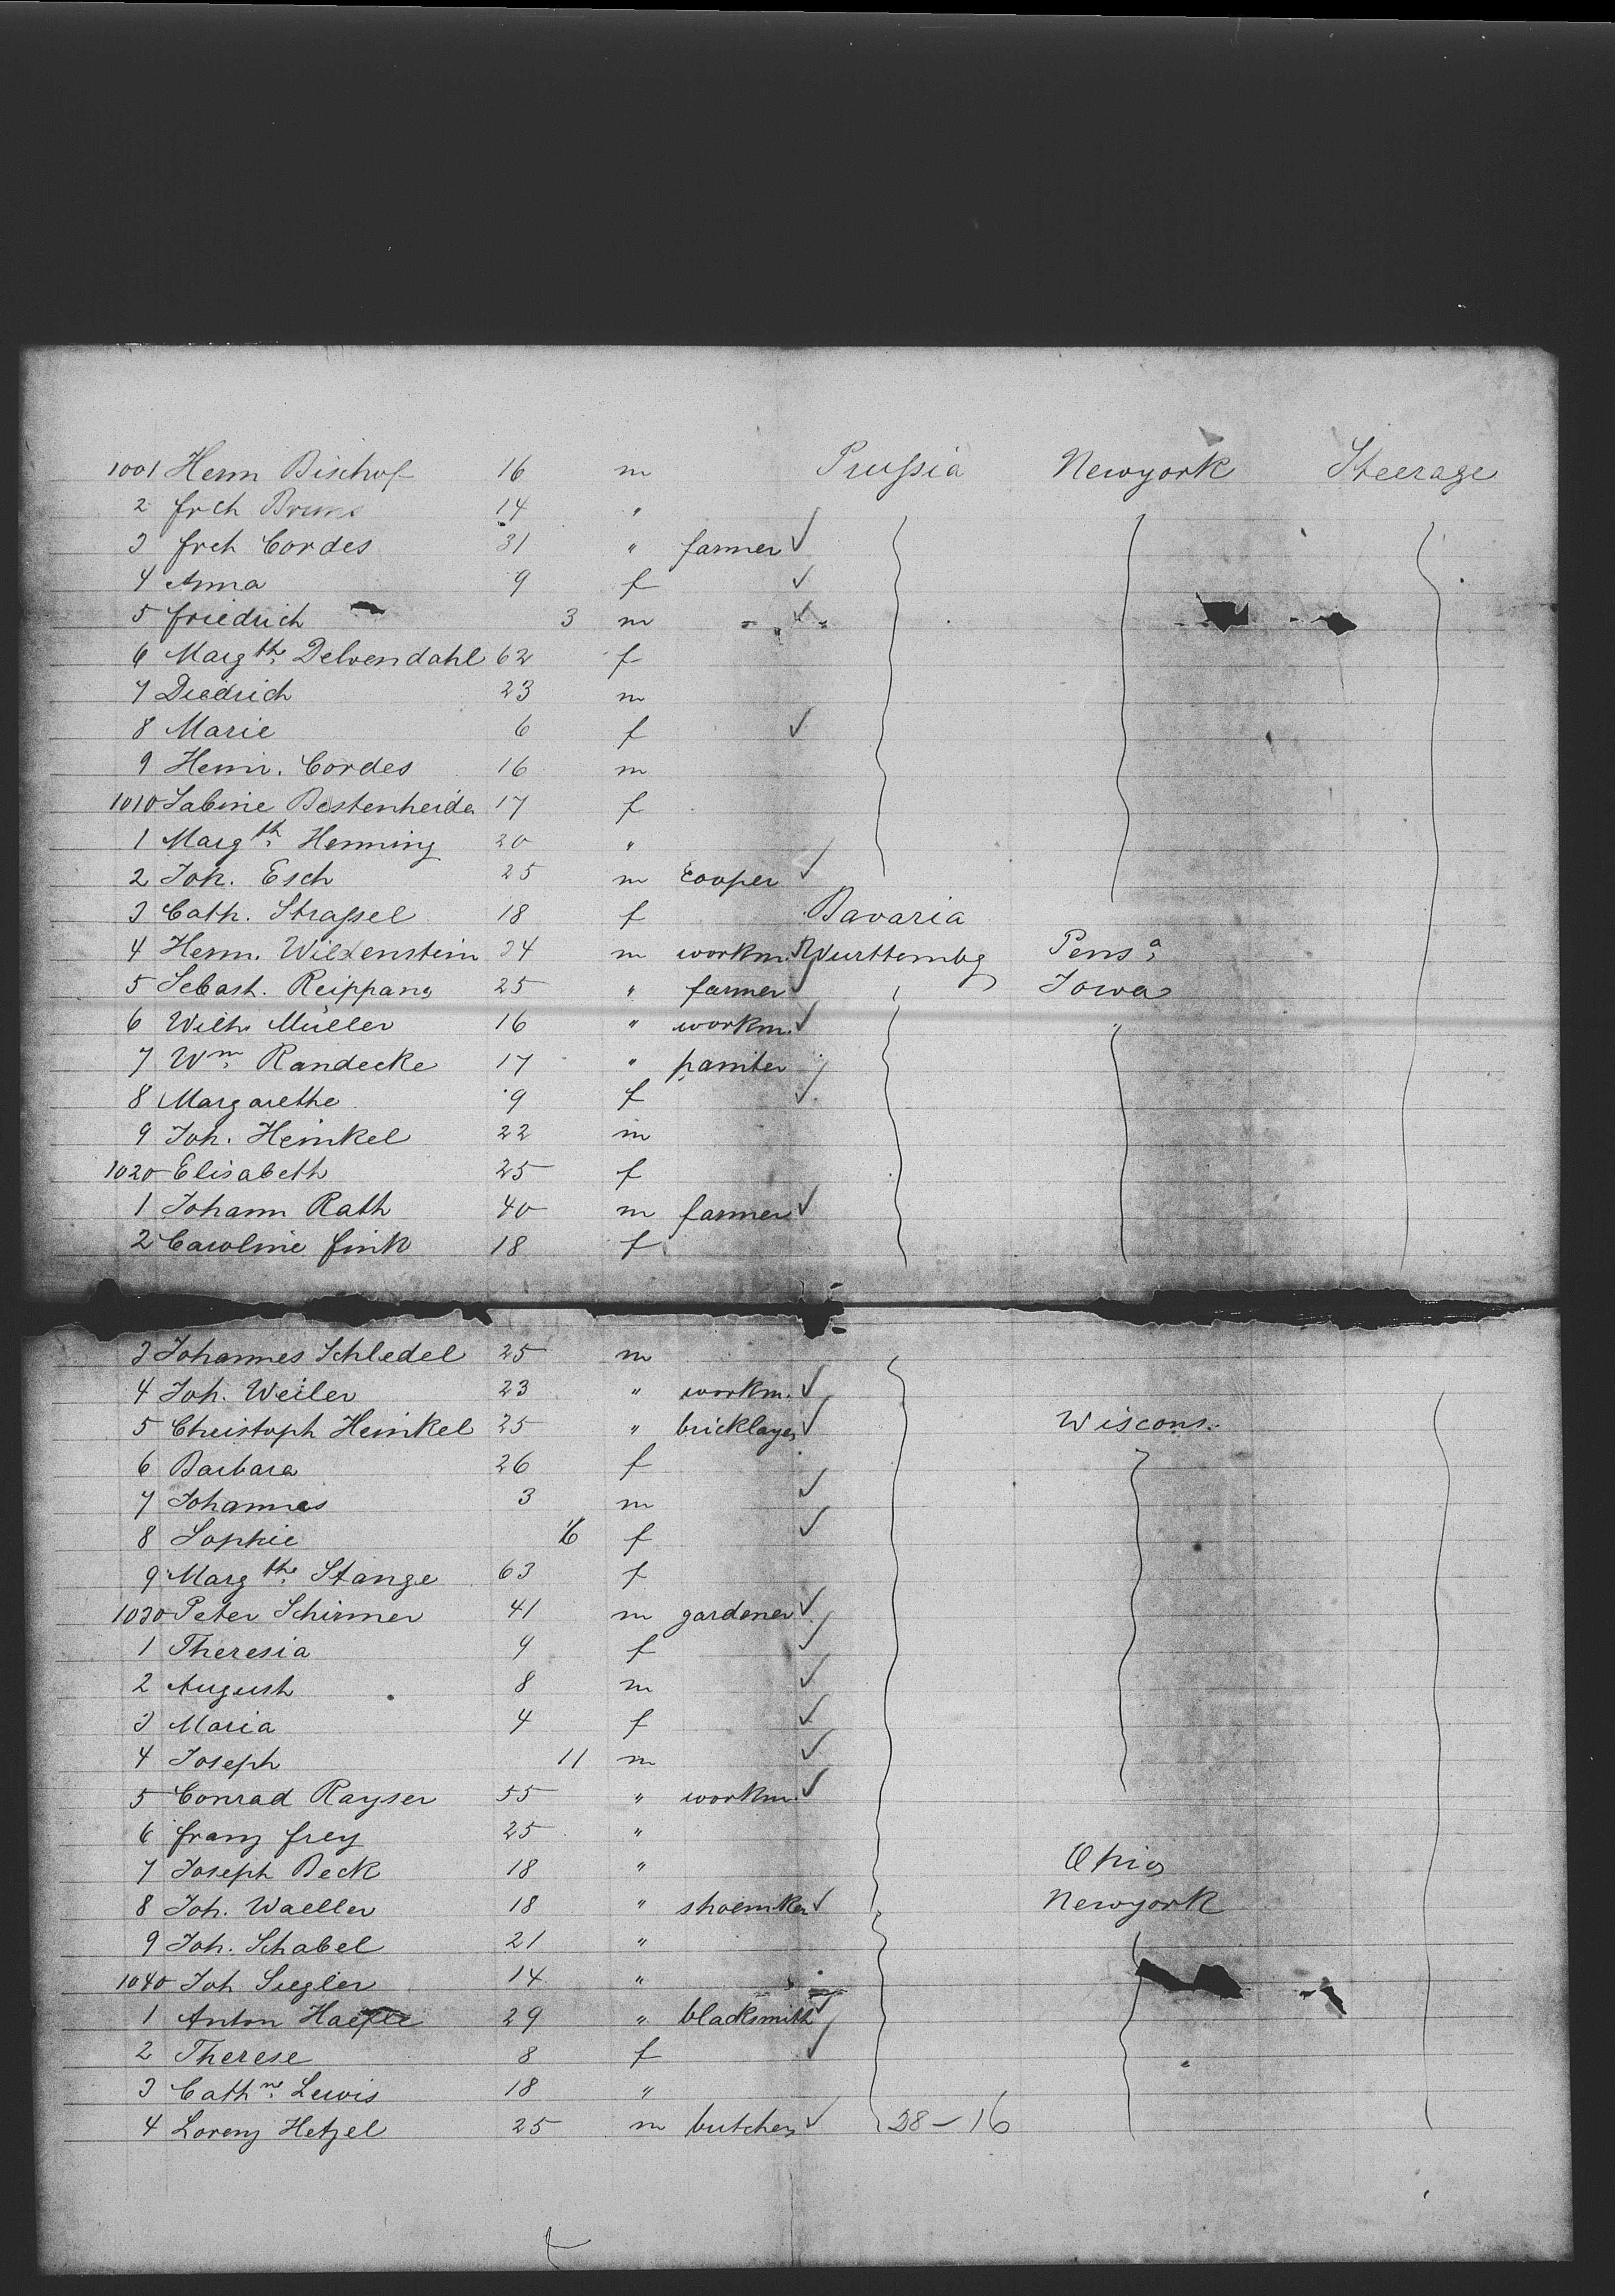 1001 Herm Bischof 16 m Prussia Newyork Steerage
2 frch Bruns 14 "
3 frch Cordes 31 " farmer ✓
4 Anna 9 f ✓
5 friedrich 3 m ✓
6 Margth. Delvendahl 62 f
7 Diedrich 23 m
8 Marie 6 f ✓
9 Heinr. Cordes 16 m
1010 Sabine Bestenheide 17 f
1 Margth. Henning 20 "
2 Joh. Esch 25 m Cooper ✓
3 Cath. Strassel 18 f Bavaria
4 Herm. Wildenstein 24 m workm. ✓ Wurttembg Pensa.
5 Sebast. Reippang 25 " farmer ✓ " Iowa
6 Wilh Müller 16 " workm. ✓ "
7 Wm. Randecke 17 " painter ✓
8 Margarethe 9 f ✓
9 Joh. Heinkel 22 m
1020 Elisabeth 25 f
1 Johann Rath 40 m farmer ✓
2 Caroline fink 18 f
3 Johannes Schledel 25 m
4 Joh. Weiler 23 " workm. ✓
5 Christoph Heinkel 25 " bricklayer ✓ Wiscons.
6 Barbara 26 f
7 Johannes 3 m ✓
8 Sophie 6 f ✓
9 Margthe. Stange 63 f
1030 Peter Schirmer 41 m gardener ✓
1 Theresia 9 f ✓
2 August 8 m ✓
3 Maria 4 f ✓
4 Joseph 11 m ✓
5 Conrad Rayser 55 " workm. ✓
6 franz frey 25 "
7 Joseph Beck 18 " Ohio
8 Joh. Waeller 18 " shoemker ✓ Newyork
9 Joh. Schabel 21 "
1040 Joh Siegler 14 "
1 Anton Haefele 29 " blacksmith ✓
2 Therese 8 f ✓
3 Cathne. Lewis 18 "
4 Lorenz Hetzel 25 m butcher ✓ 28-16